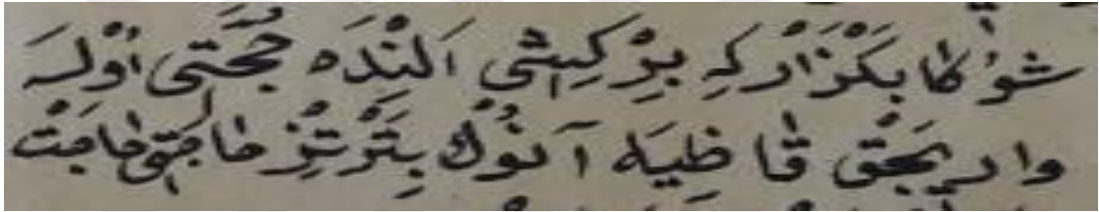 شوُكا بَكْزَارْ كِه بِرْ كِشِى اَلِنْدَه حُجَّتى اوْلَه
وارِيجَق قاظِيَه آنوُك بِتَرْ تِزْ حاجَتى حاجَتْ